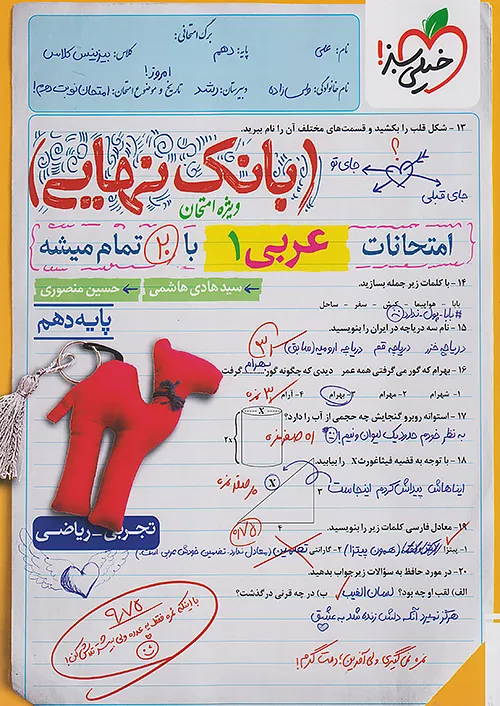 خیلی سبز!
برگ امتحانی:
نام: علمی
پایه: دهم
کلاس: بیزینس کلاس
امروز!
نام خانوادگی: ولی زاده
دبیرستان: رشد
تاریخ و موضوع امتحان: امتحان نوبت دهم!
۱۳ - شکل قلب را بکشید و قسمت‌های مختلف آن را نام ببرید.
؟
جای تو
جای قبلی
(بانک نهایی)
ویژه امتحان
امتحانات عربی ۱ با ۲۰ تمام میشه
سید هادی هاشمی
حسین منصوری
پایه دهم
۱۴ - با کلمات زیر جمله بسازید.
بابا - هواپیما - کیش - سفر - ساحل
#بابا-پول-ندارد
۱۵ - نام سه دریاچه در ایران را بنویسید.
دریاچه خزر دریاچه قم دریاچه ارومیه (سابق)
۳
۱۶ - بهرام که گور می گرفتی همه عمر دیدی که چگونه گور بهرام گرفت
۱- شهرام ۲- مهرام ۳- بهرام ۴- آرام
۳ نمره
۱۷ - استوانه روبرو گنجایش چه حجمی از آب را دارد؟
به نظر خودم حدود یک لیوان و نیم!
x
2x
۱۸ - با توجه به قضیه فیثاغورث X را بیابید.
ایناهاش پیداش کردم اینجاست
X
۳
۴
۱۹ - معادل فارسی کلمات زیر را بنویسید.
۱- پیتزا (همون پیتزا) ۲- گارانتی تضمین (معادل ندارد. تضمین خودش عربی است.)
۲۰ - در مورد حافظ به سؤالات زیر جواب بدهید.
الف) لقب او چه بود؟ لسان الغیب ب) در چه قرنی درگذشت؟
هرگز نمیرد آنکه دلش زنده شد به عشق
تجربی - ریاضی
۹/۷۵
نمره نمی گیری ولی آفرین! دمت گرم!